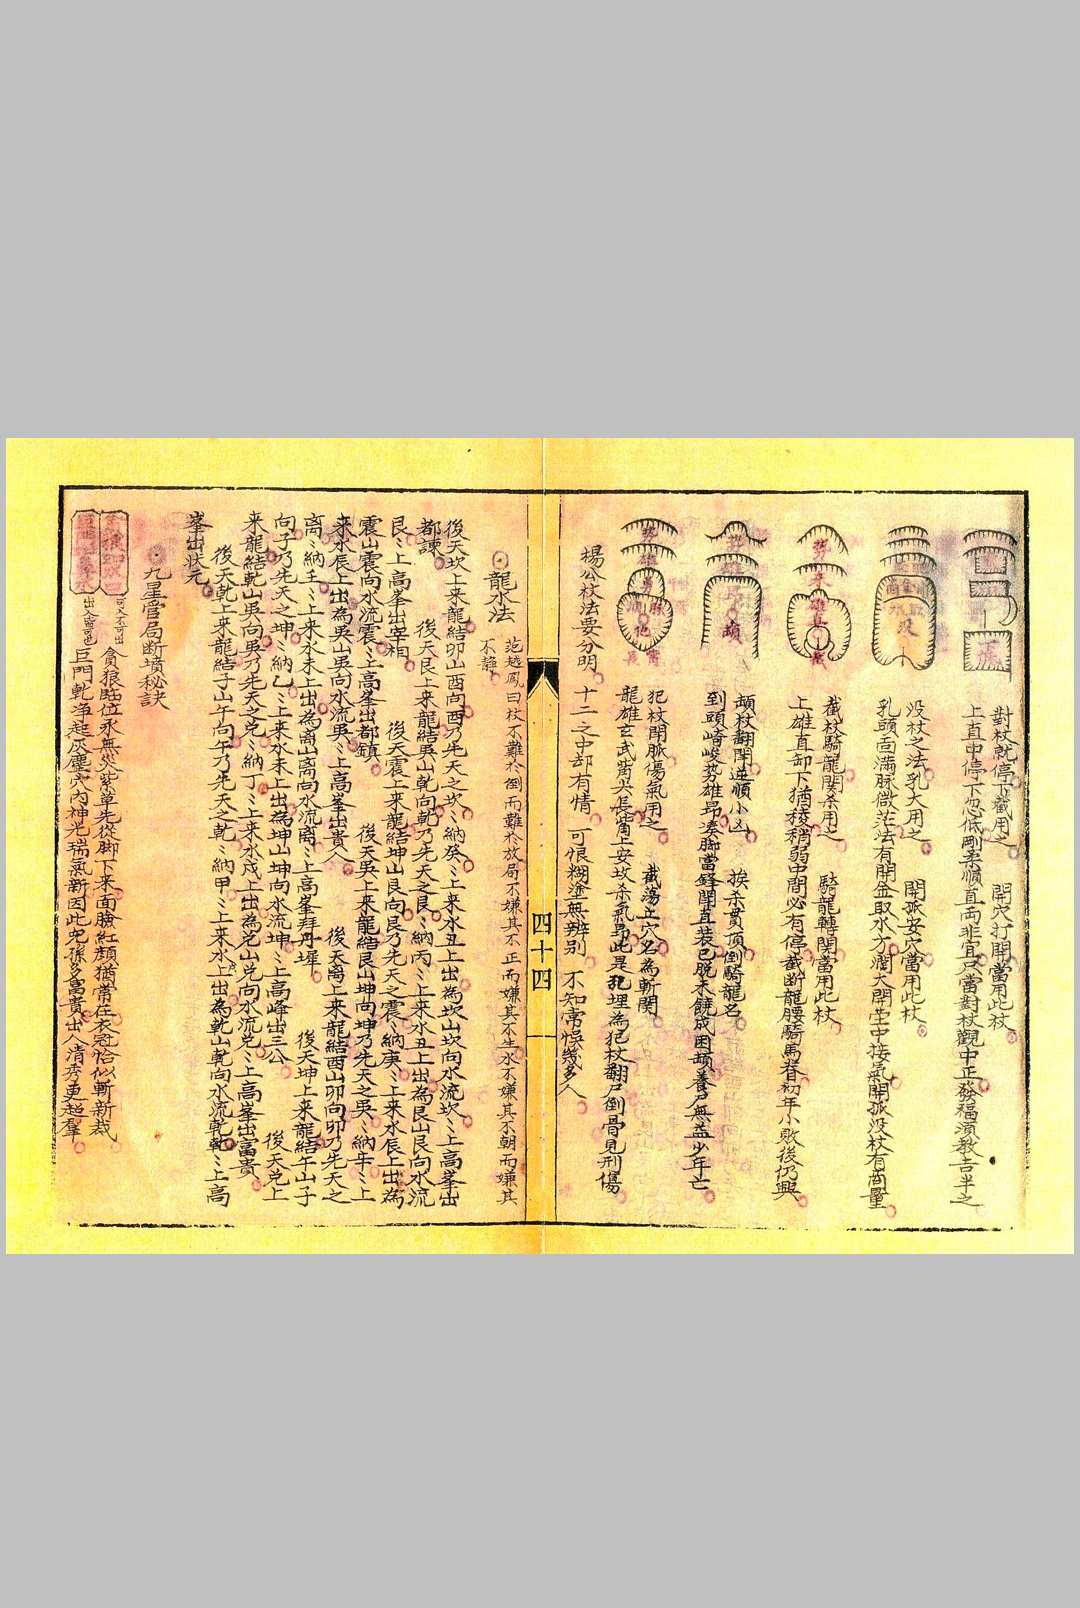 對杖就停下截用之　開穴打開當用此杖
上直中停下忽低剛柔順直両非宜只當對杖觀中正發福須教吉半之
没杖之法乳大用之　開孤安穴當用此杖
乳頭面滿脉微茫法有開金取水方濶大開堂中接氣開孤没杖有啇量
截杖騎龍関杀用之　騎龍轉関當用此杖
上雄直卸下猶稜稍弱中間必有停截断龍腰騎馬脊初年小敗後仍興
頓杖翻閗逆順小凶　挨杀貫頂倒騎龍名
到頭﨑峻势雄昂湊脚當鋒閗直装已脫未饒成困頓養尸無益少年亡
犯杖閗脈傷氣用之　截蕩立穴名為斬関
龍雄玄武觜尖長觜上安坟杀氣昂此是孔埋為犯杖翻尸倒骨見刑傷
楊公杖法要分明　十二之中却有情　可恨糊塗無辨別　不知常悞幾多人
四十四
龍水法
范越鳳曰杖不難於倒而難於放局不嫌其不正而嫌其不生水不嫌其不朝而嫌其
不静
後天坎上来龍結卯山酉向酉乃先天之坎〻納癸〻上来水丑上出為坎山坎向水流坎〻上高峯出
都諫　後天艮上来龍結吳山乾向乾乃先天之艮〻納丙〻上来水丑上出為艮山艮向水流
艮〻上高峯出宰相　後天震上来龍結坤山艮向艮乃先天之震〻納庚〻上来水辰上出為
震山震向水流震〻上高峯出都鎮　後天吳上来龍結艮山坤向坤乃先天之吳〻納辛〻上
来水辰上出為吳山吳向水流吳〻上高峯出貴人　後天离上来龍結酉山卯向卯乃先天之
离〻納壬〻上来水未上出為离山离向水流离〻上高峯拜丹墀　後天坤上来龍結午山子
向子乃先天之坤〻納乙〻上来水未上出為坤山坤向水流坤〻上高峰出三公　後天兌上
来龍結乾山吳向吳乃先天之兌〻納丁〻上来水戍上出為兌山兌向水流兌〻上高峯出富貴
後天乾上来龍結子山午向午乃先天之乾〻納甲〻上来水上出為乾山乾向水流乾〻上高
峯出状元
九星管局断墳秘訣
可入不可出　貪狼临位永無災紫草先從脚下来面臉紅顔猶常在衣冠恰似斬新裁
出入皆可也　巨門乾净起灰塵穴內神光瑞氣新因此兒孫多富貴出人清秀更超羣